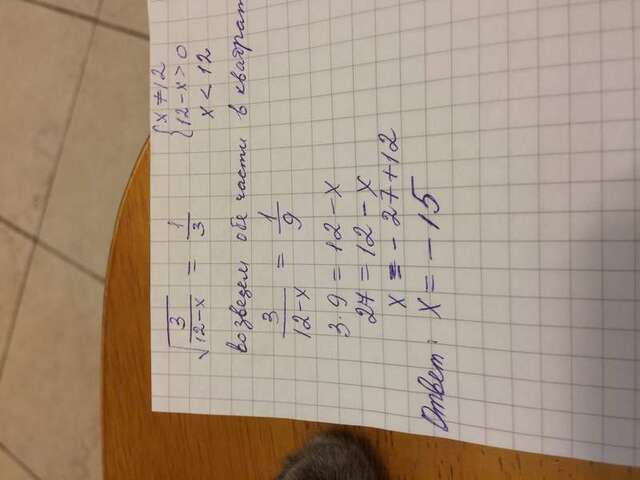 √(3/(12-x)) = 1/3 { x ≠ 12
{ 12-x > 0
x < 12
возведем обе части в квадрат
3/(12-x) = 1/9
3·9 = 12-x
27 = 12-x
x = -27+12
Ответ: x = -15